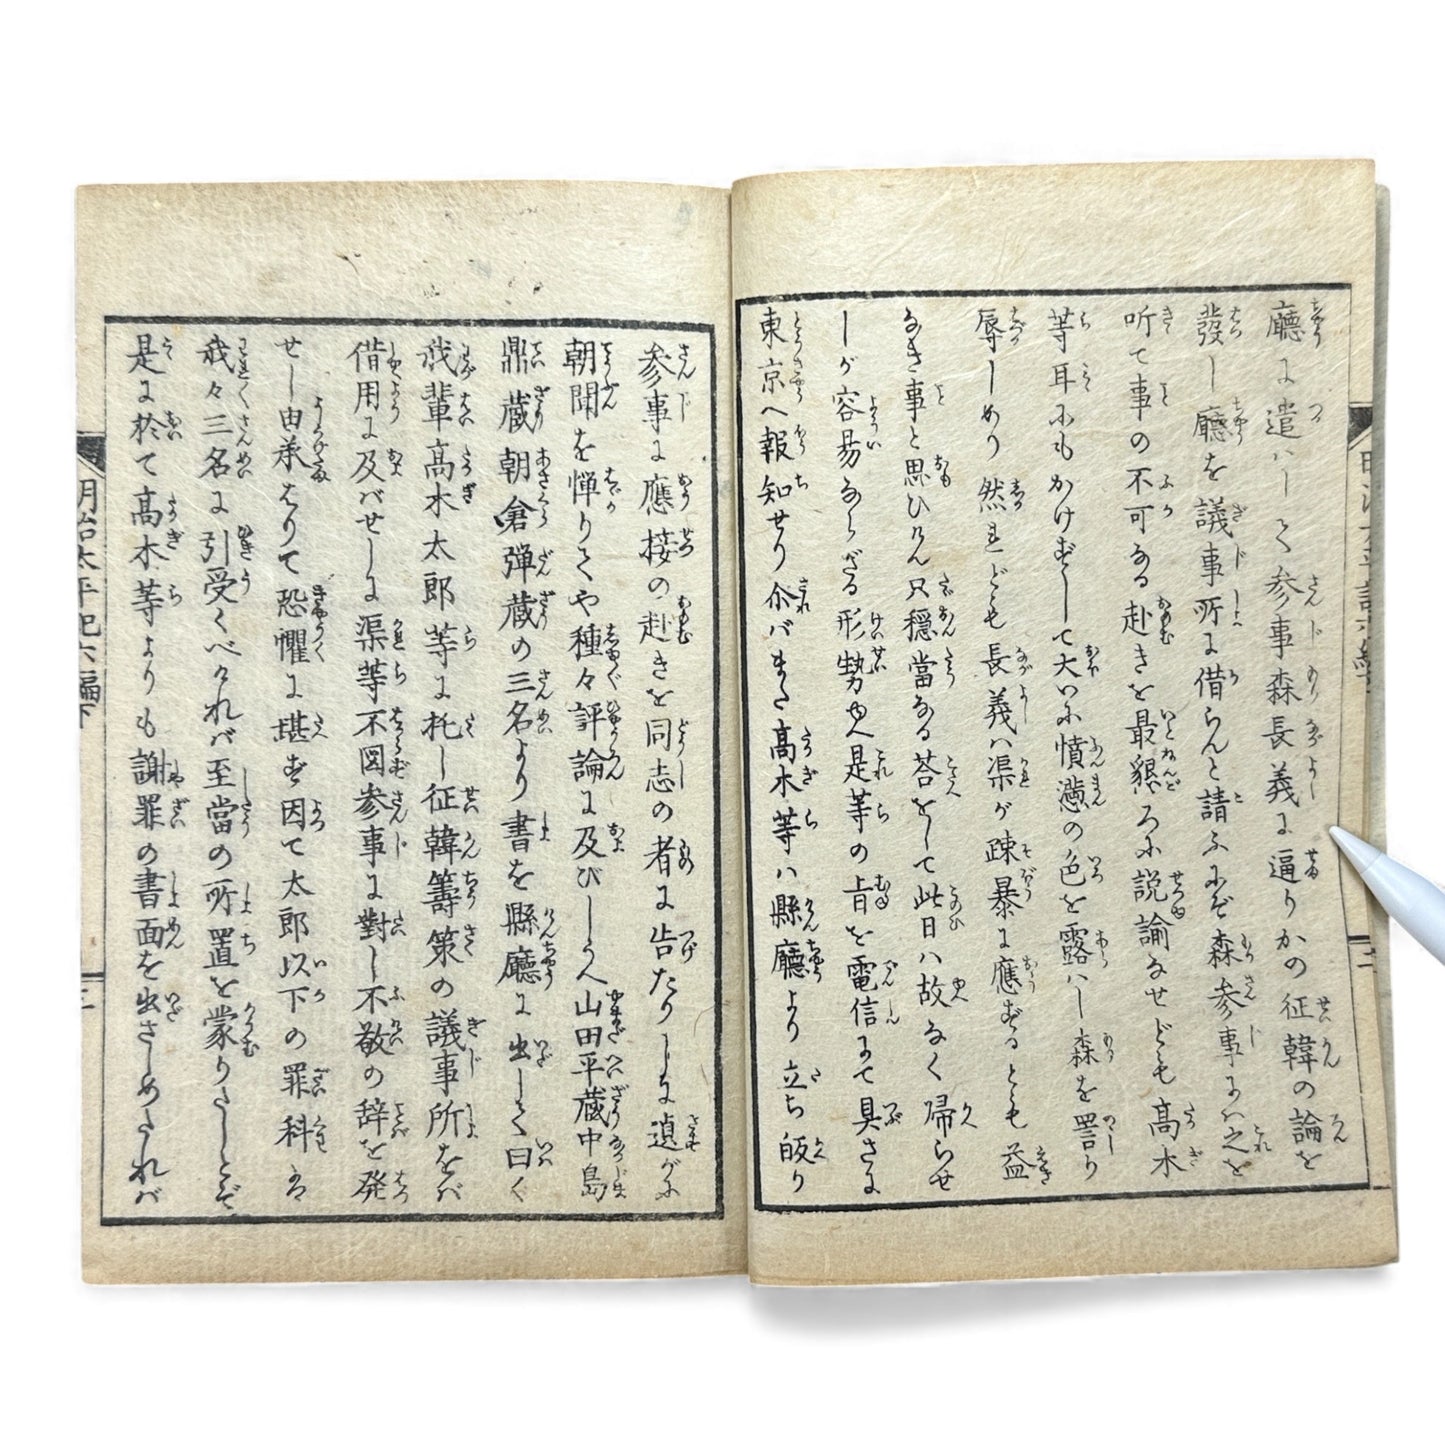 廳に遣ハして参事森長義に逼りかの征韓の論を
發し廳を議事所に借らんと請ふにぞ森参事ハ之を
听て事の不可なる赴きを最懇ろに説諭なせども高木
等耳にもかけずして大いに憤懣の色を露ハし森を詈り
辱しめり然れども長義ハ渠が疎暴に應ずるとも益
なき事と思ひけん只穏當なる荅をして此日ハ故なく帰らせ
しが容易ならざる形勢ゆへ是等の旨を電信にて具さに
東京へ報知せり尒バまた高木等ハ縣廳より立ち皈り
参事に應接の赴きを同志の者に告たりしに遉がに
朝聞を憚りてや種々評論に及びしうへ山田平蔵中島
鼎蔵朝倉弾蔵の三名より書を縣廳に出して曰く
我輩高木太郎等に托し征韓籌策の議事所をバ
借用に及バせしに渠等不図参事に對し不敬の辞を発
せし由承はりて恐懼に堪ず因て太郎以下の罪科ハ
我々三名に引受くべけれバ至當の所置を蒙りたしとぞ
是に於て高木等よりも謝罪の書面を出さしめたれバ
明治太平記六編下
三